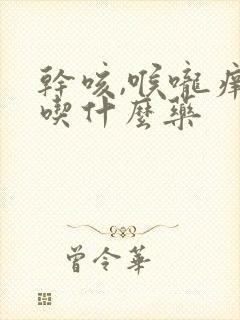 幹咳,喉嚨癢
喫什麼藥
曾令華